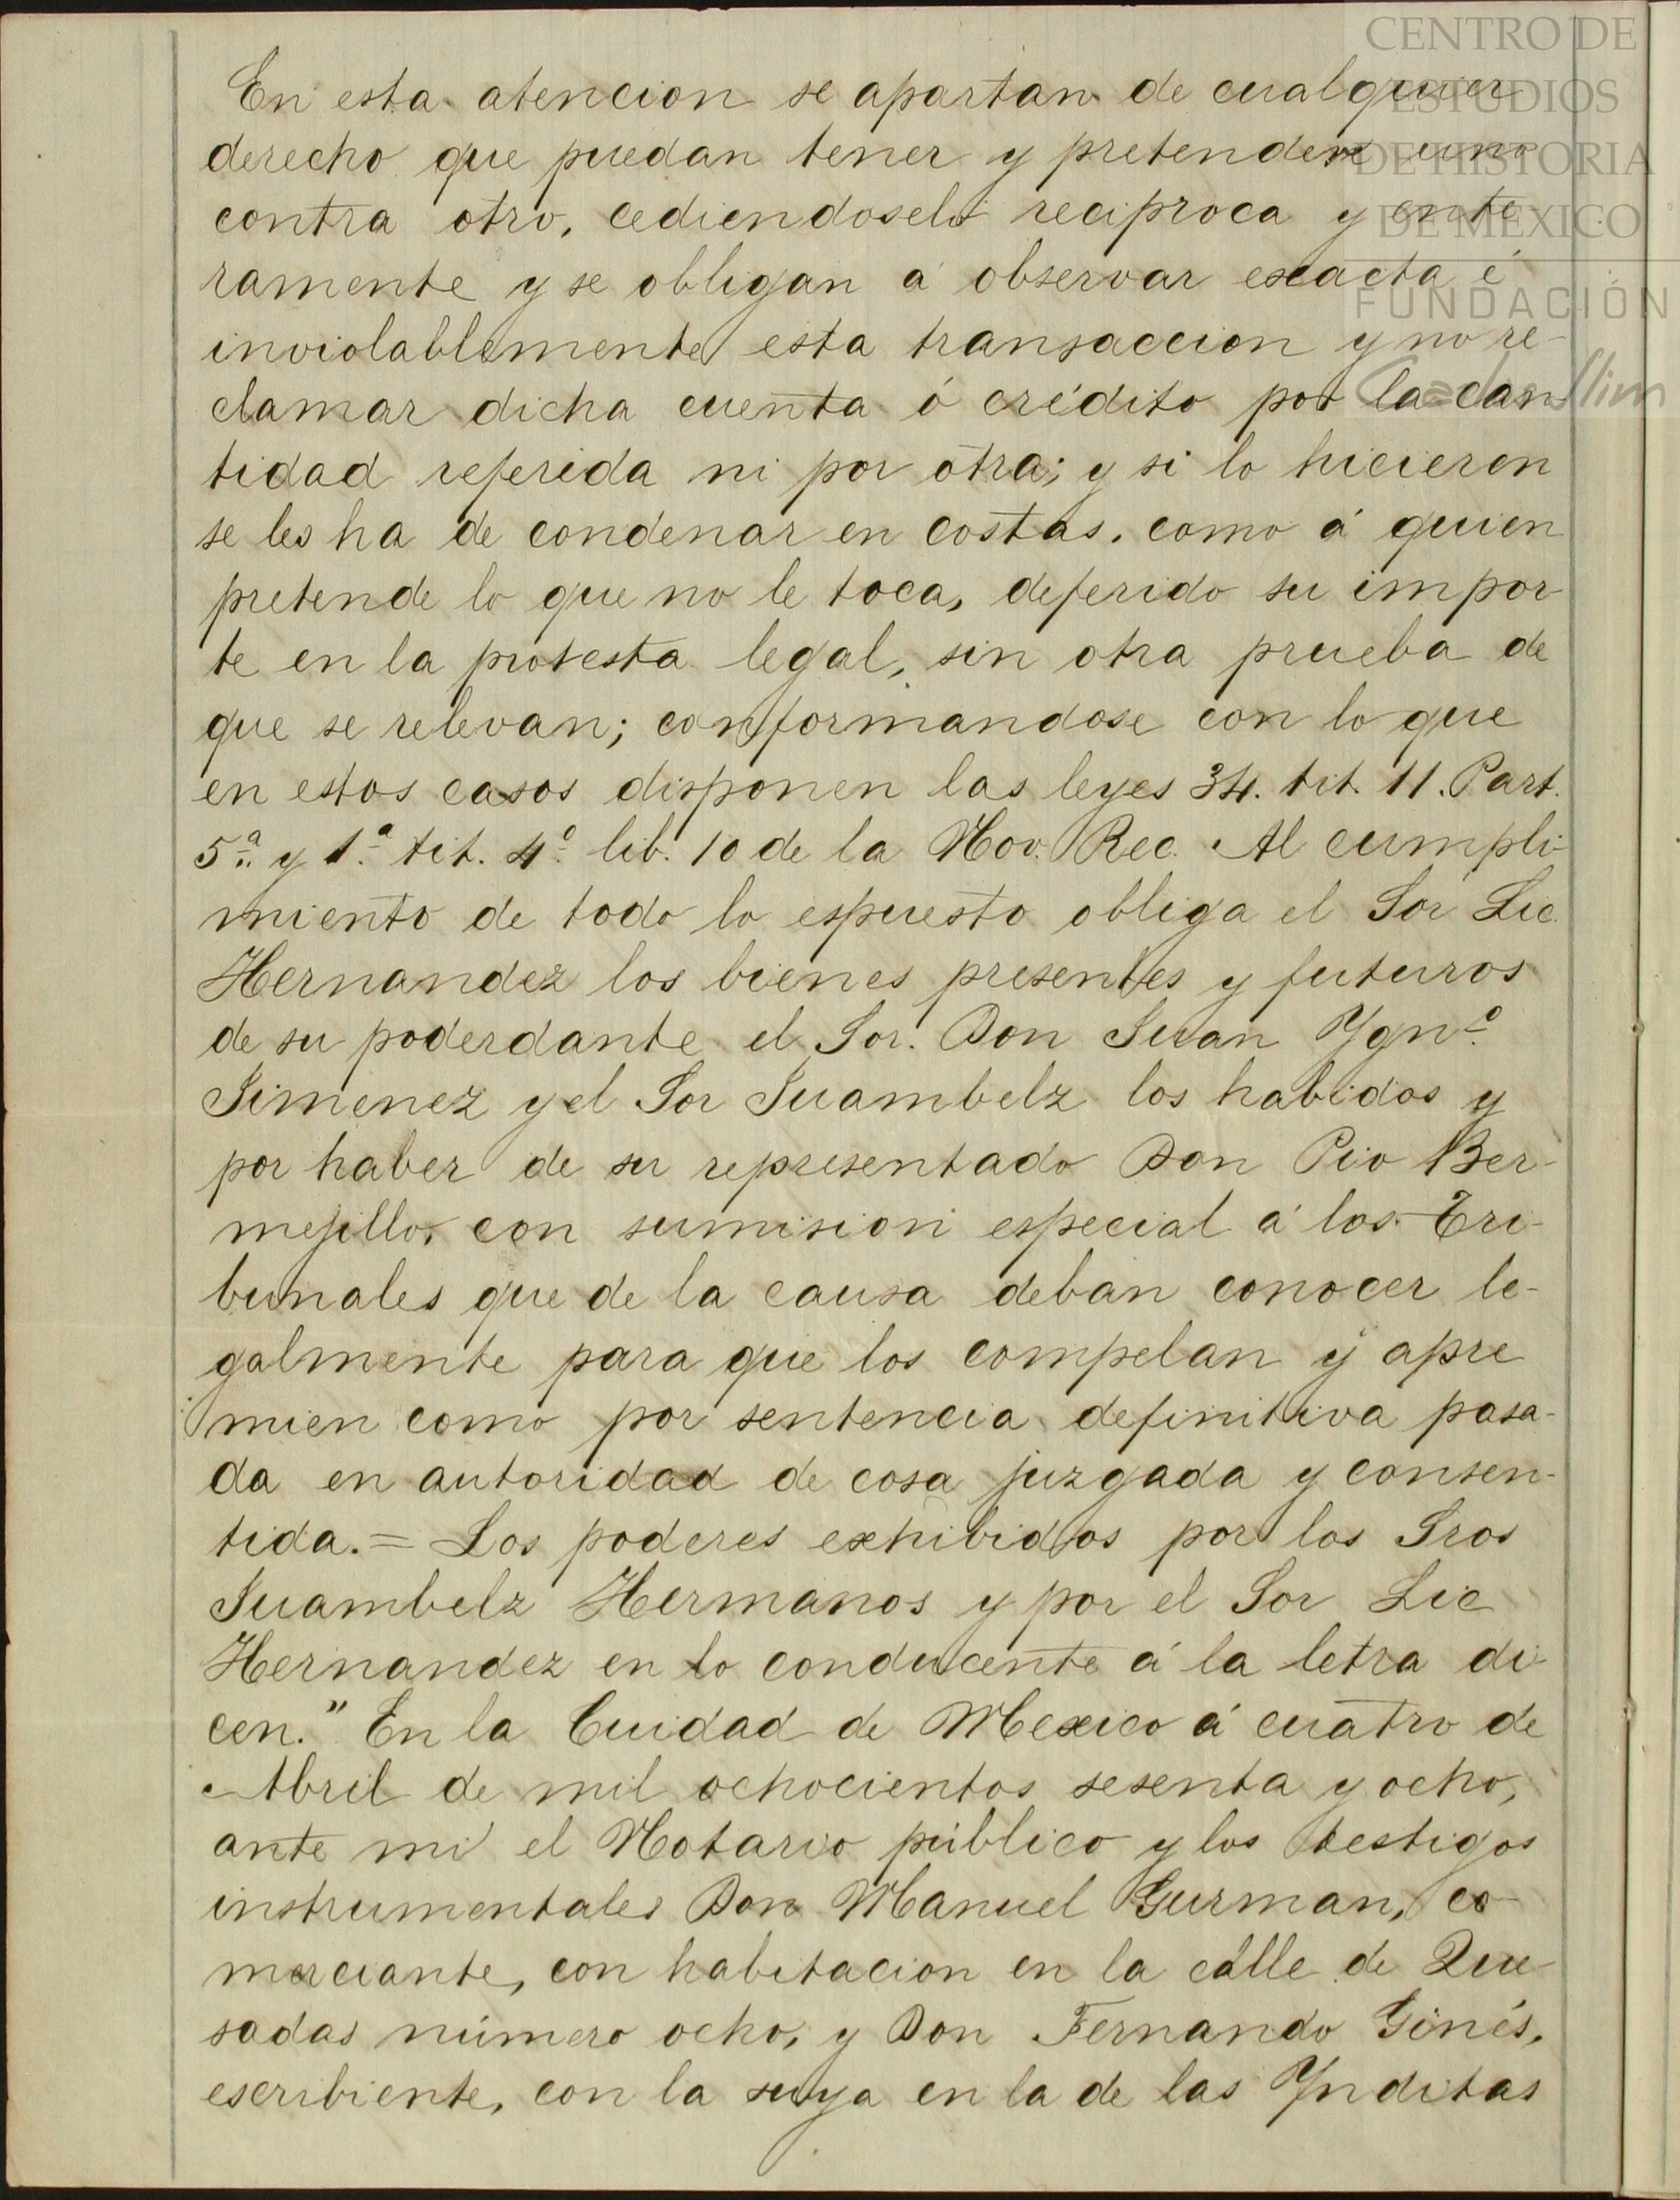 CENTRO DE
ESTUDIOS
DE HISTORIA
DE MEXICO
FUNDACIÓN
Carlos Slim
En esta atencion se apartan de cualquier
derecho que puedan tener y pretender uno
contra otro, cediendoselo reciproca y ente
ramente y se obligan á observar exacta é
inviolablemente esta transaccion y no re-
clamar dicha cuenta ó crédito por la can
tidad referida ni por otra; y si lo hicieren
se les ha de condenar en costas, como á quien
pretende lo que no le toca, deferido su impor
te en la protesta legal, sin otra prueba de
que se relevan; conformandose con lo que
en estos casos disponen las leyes 34. tit. 11. Part.
5.ª y 1.ª tit. 4.º lib. 10 de la Nov. Rec. Al cumpli-
miento de todo lo espuesto obliga el Sor Lic.
Hernandez los bienes presentes y futuros
de su poderdante el Sor. Don Juan Ygn.º
Jimenez y el Sor Juambelz los habidos y
por haber de su representado Don Pio Ber-
mejillo, con sumision especial á los Tri-
bunales que de la causa deban conocer le-
galmente para que los compelan y apre
mien como por sentencia definitiva pasa-
da en autoridad de cosa juzgada y consen-
tida.= Los poderes exhibidos por los Sros
Juambelz Hermanos y por el Sor Lic
Hernandez en lo conducente á la letra di-
cen." En la Cuidad de Mexico á cuatro de
Abril de mil ochocientos sesenta y ocho,
ante mi el Notario público y los testigos
instrumentales Don Manuel Gurman, co-
merciante, con habitacion en la calle de Que
sadas número ocho, y Don Fernando Ginés,
escribiente, con la suya en la de las Ynditas